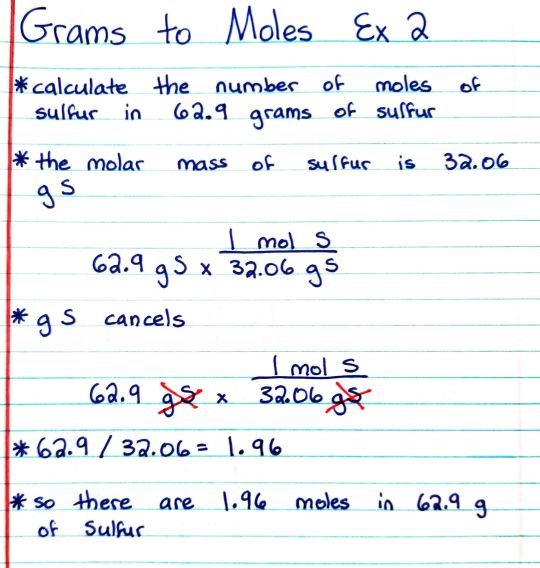 Grams to Moles Ex 2
*calculate the number of moles of
sulfur in 62.9 grams of sulfur
*the molar mass of sulfur is 32.06
g S
1 mol S
62.9 g S x 32.06 g S
*g S cancels
1 mol S
62.9 g S x 32.06 g S
*62.9 / 32.06 = 1.96
*so there are 1.96 moles in 62.9 g
of Sulfur